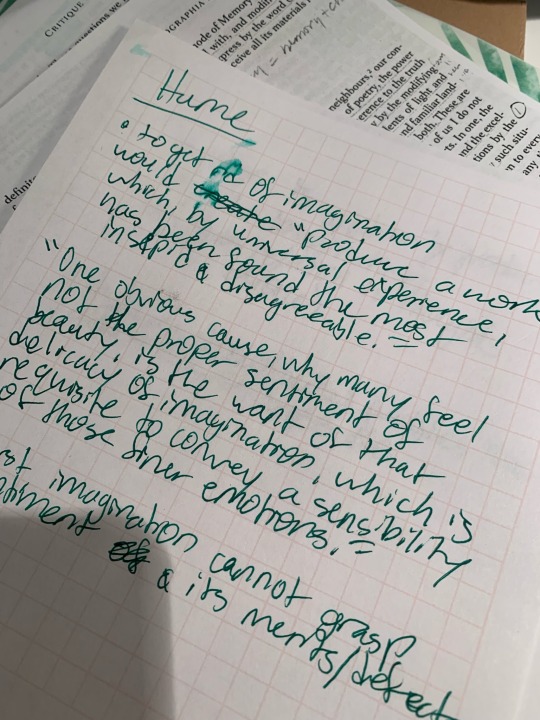 CRITIQUE
OGRAPHIA
uestions we
node of Memory
with, and modifi
press by the word
ceive all its materials
definit
neighbours,² our con-
of poetry, the power
erence to the truth
y by the modifying
lents of light and
nd familiar land-
both. These are
of us I do not
ts. In one, the
nd the excel-
tions by the
such situ-
n to every
any
Hume
• to get rid of imagination
would create "produce a work
which, by universal experience,
has been found the most
insipid & disagreeable."
"One obvious cause, why many feel
not the proper sentiment of
beauty, is the want of that
delicacy of imagination, which is
requisite to convey a sensibility
of those finer emotions."
imagination cannot grasp
& its merits/defect